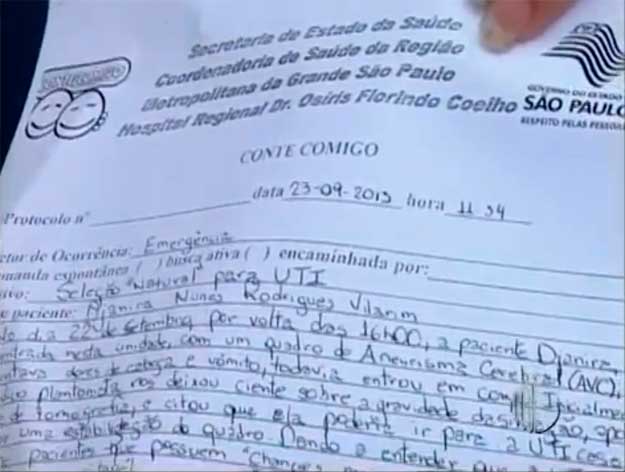 Secretaria de Estado da Saúde
Coordenadoria de Saúde da Região
Metropolitana da Grande São Paulo
Hospital Regional Dr. Osíris Florindo Coelho
GOVERNO DO ESTADO
SÃO PAULO
RESPEITO PELAS PESSOAS
CONTE COMIGO
CONTE COMIGO
Protocolo nº data 23-09-2013 hora 11 34
etor de Ocorrência: Emergência
manda espontânea ( ) busca ativa ( ) encaminhada por:
ivo: Seleção "Natural" para UTI
e paciente: Djanira Nunes Rodrigues Vilarim
No dia 22 de setembro por volta das 16h00, a paciente Djanira,
entrada nesta unidade, com um quadro de Aneurisma Cerebral (AVC),
ntava dores de cabeça e vômito, todavia entrou em coma. Inicialme
plantonista nos deixou ciente sobre a gravidade da situação, apó
de tomografia, e citou que ela poderia ir para a UTI caso
r uma estabilização do quadro. Dando a entender que
pacientes que possuem "chances